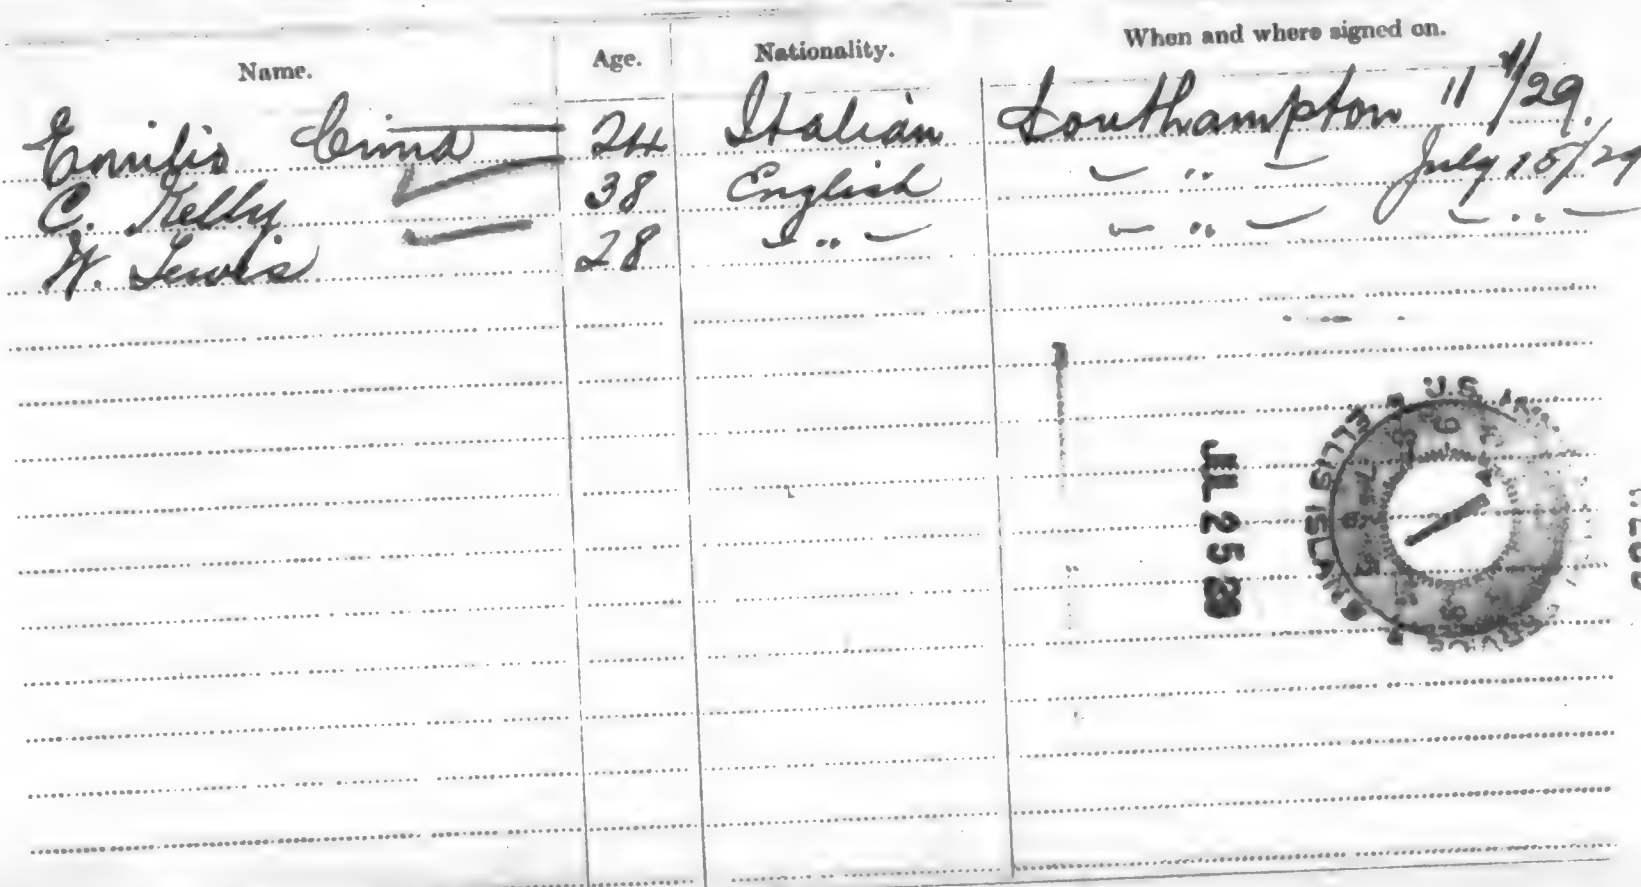 Name. Age. Nationality. When and where signed on.
Emilio Cima 24 Italian Southampton 11 /29.
C. Kelly 38 English — " — July 15/29
W. Lewis 28 — " — — " — — " —
U.S.
ELLIS ISLAND
JUL 25